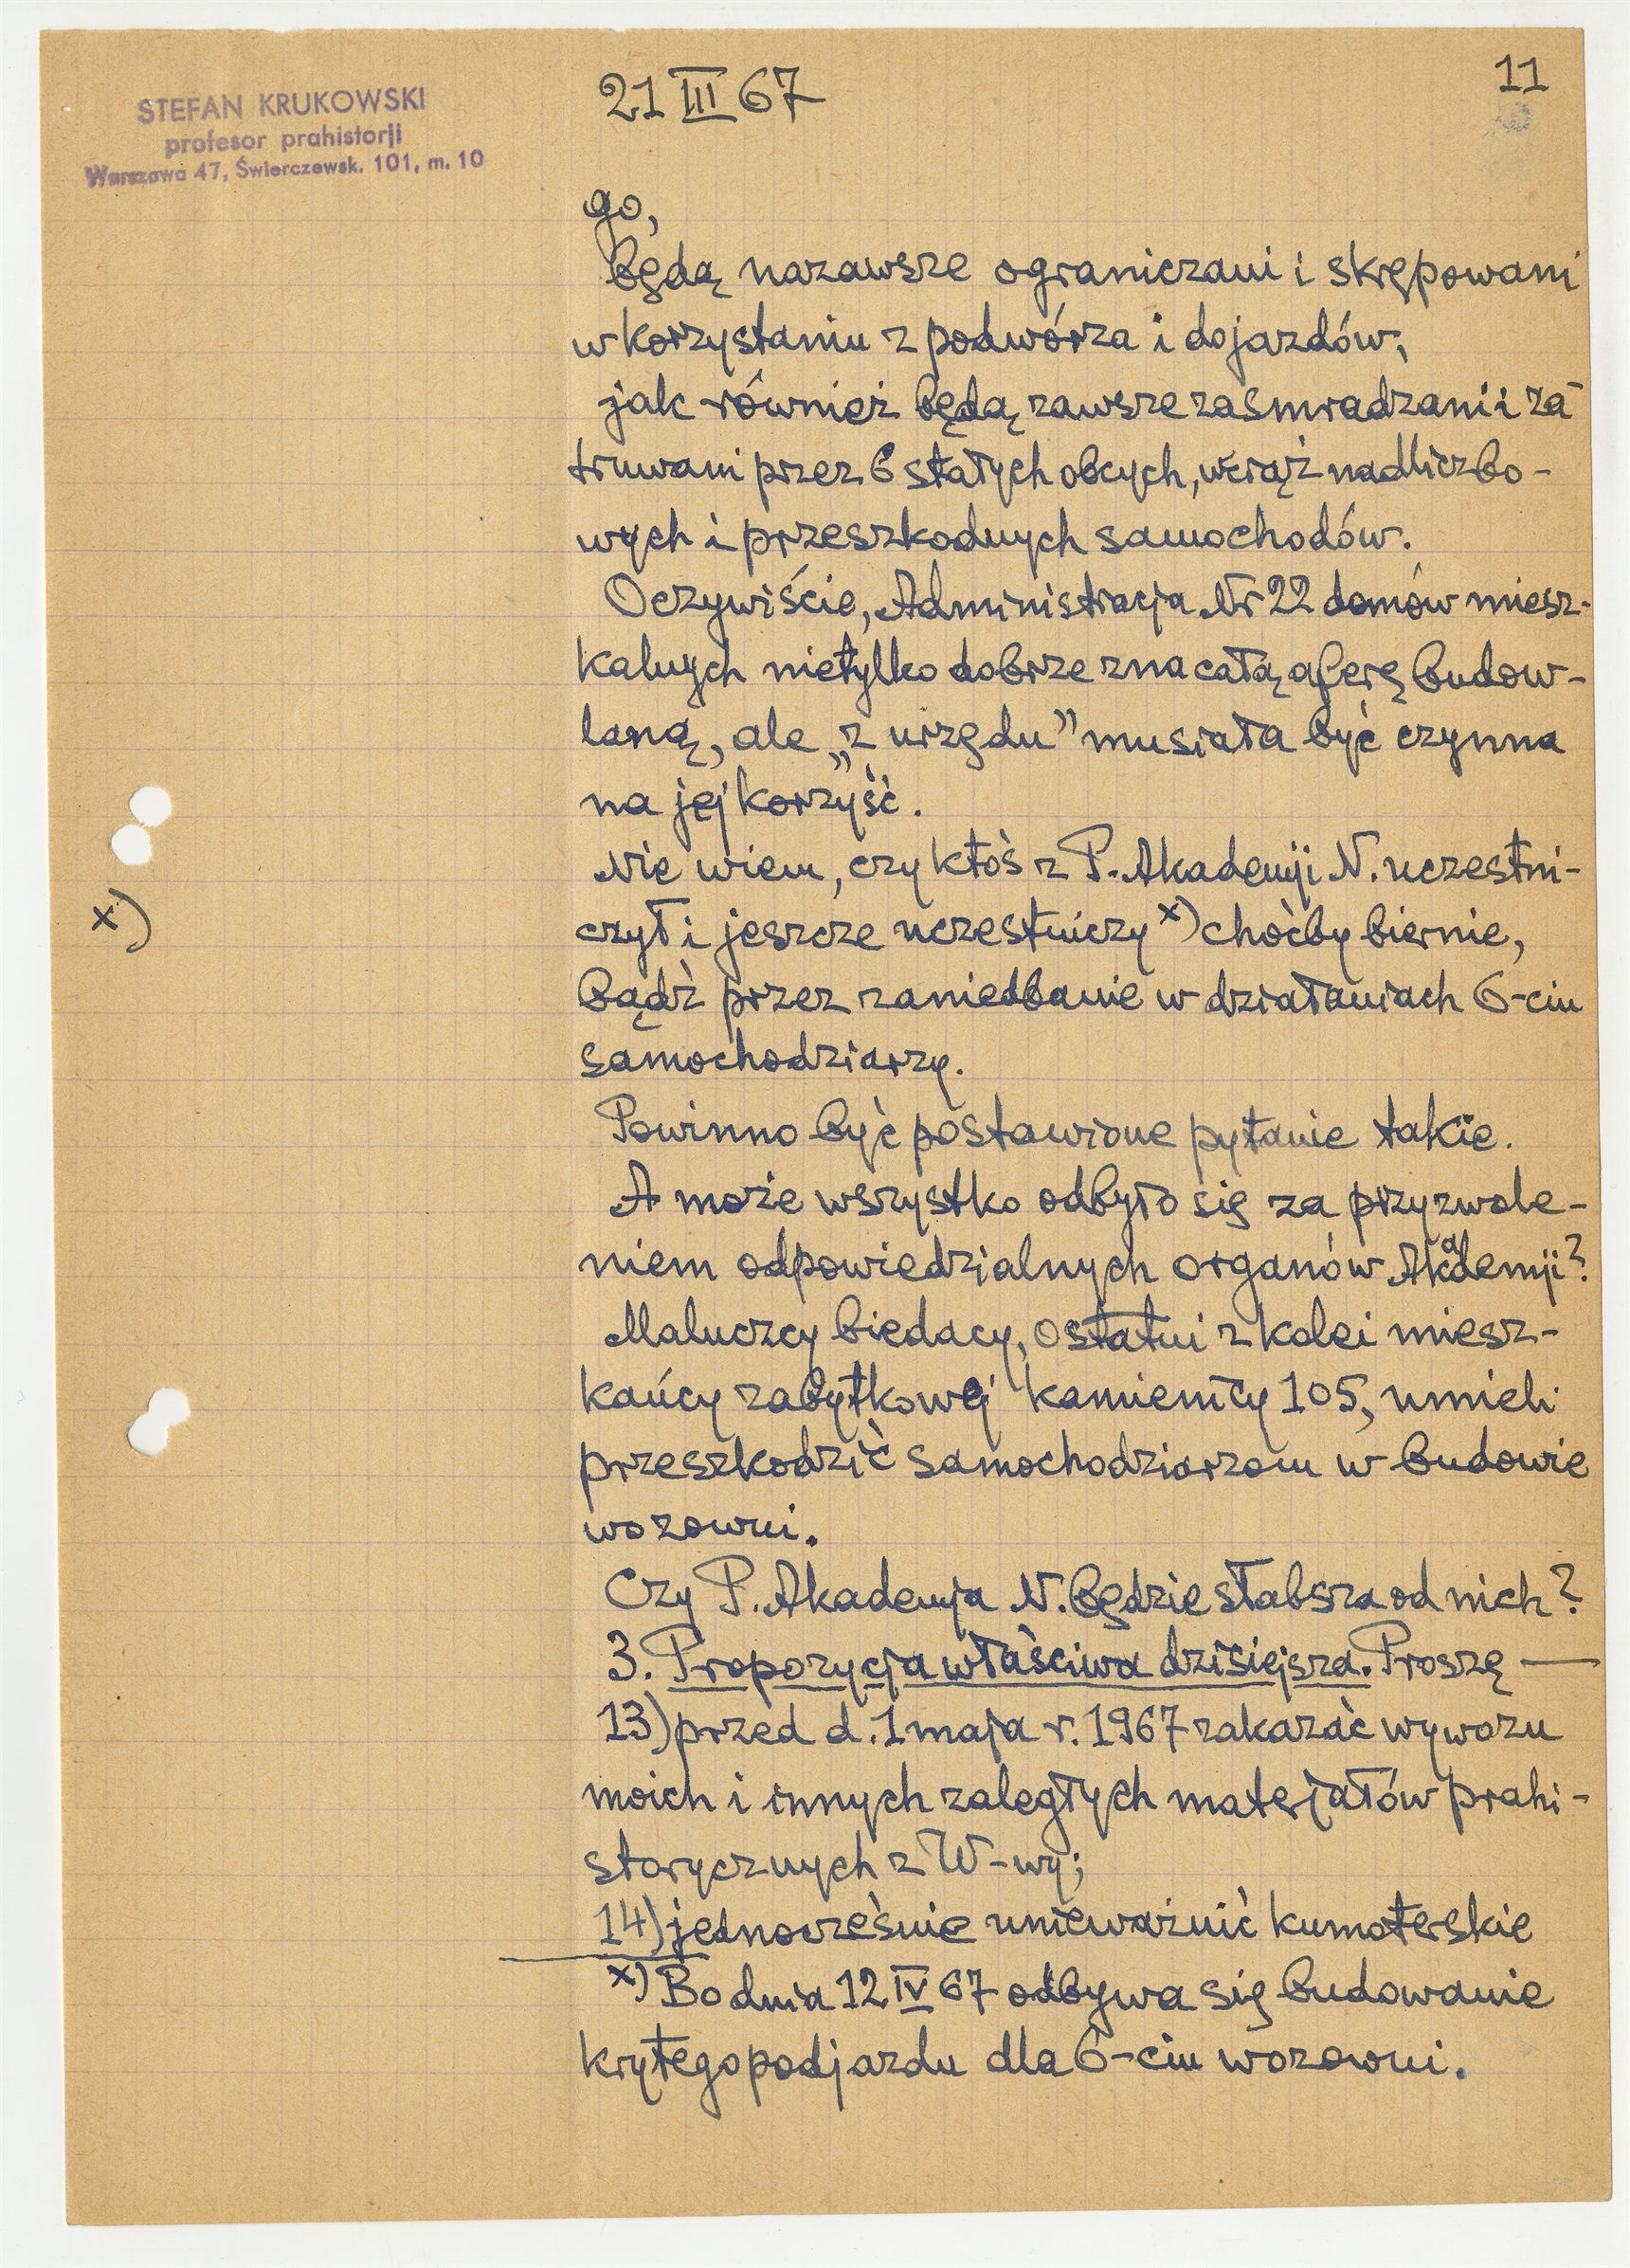 STEFAN KRUKOWSKI
profesor prahistorji
Warszawa 47, Świerczewsk. 101, m. 10
21 III 67
11
go,
będą nazawsze ograniczani i skrępowani
w korzystaniu z podwórza i dojazdów,
jak również będą zawsze zasmradzani i za-
truwani przez 6 stałych obcych, wciąż nadliczbo-
wych i przeszkodnych samochodów.
Oczywiście, Administracja Nr 22 domów miesz-
kalnych nietylko dobrze zna całą aferę budow-
laną, ale „z urzędu” musiała być czynna
na jej korzyść.
Nie wiem, czy ktoś z P. Akademji N. uczestni-
x)
czył i jeszcze uczestniczy x) choćby biernie,
bądź przez zaniedbanie w działaniach 6-ciu
samochodziarzy.
Powinno być postawione pytanie takie.
A może wszystko odbyło się za przyzwole-
niem odpowiedzialnych organów Akademji?
Maluczcy biedacy, ostatni z kolei miesz-
kańcy zabytkowej kamienicy 105, umieli
przeszkodzić samochodziarzom w budowie
wozowni.
Czy P. Akademja N. będzie słabsza od nich?
3. Propozycja właściwa dzisiejsza. Proszę —
13) przed d. 1 maja r. 1967 zakazać wywozu
moich i innych zaległych materjałów prahi-
storycznych z W-wy;
14) jednocześnie unieważnić kumoterskie
x) Bo dnia 12 IV 67 odbywa się budowanie
krytego podjazdu dla 6-ciu wozowni.